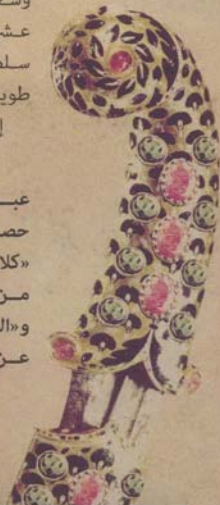 وسـ
عـشـ
سـلـط
طويـ
إ
عبـ
حصـ
«كلا
مـن
و«الـ
عـن